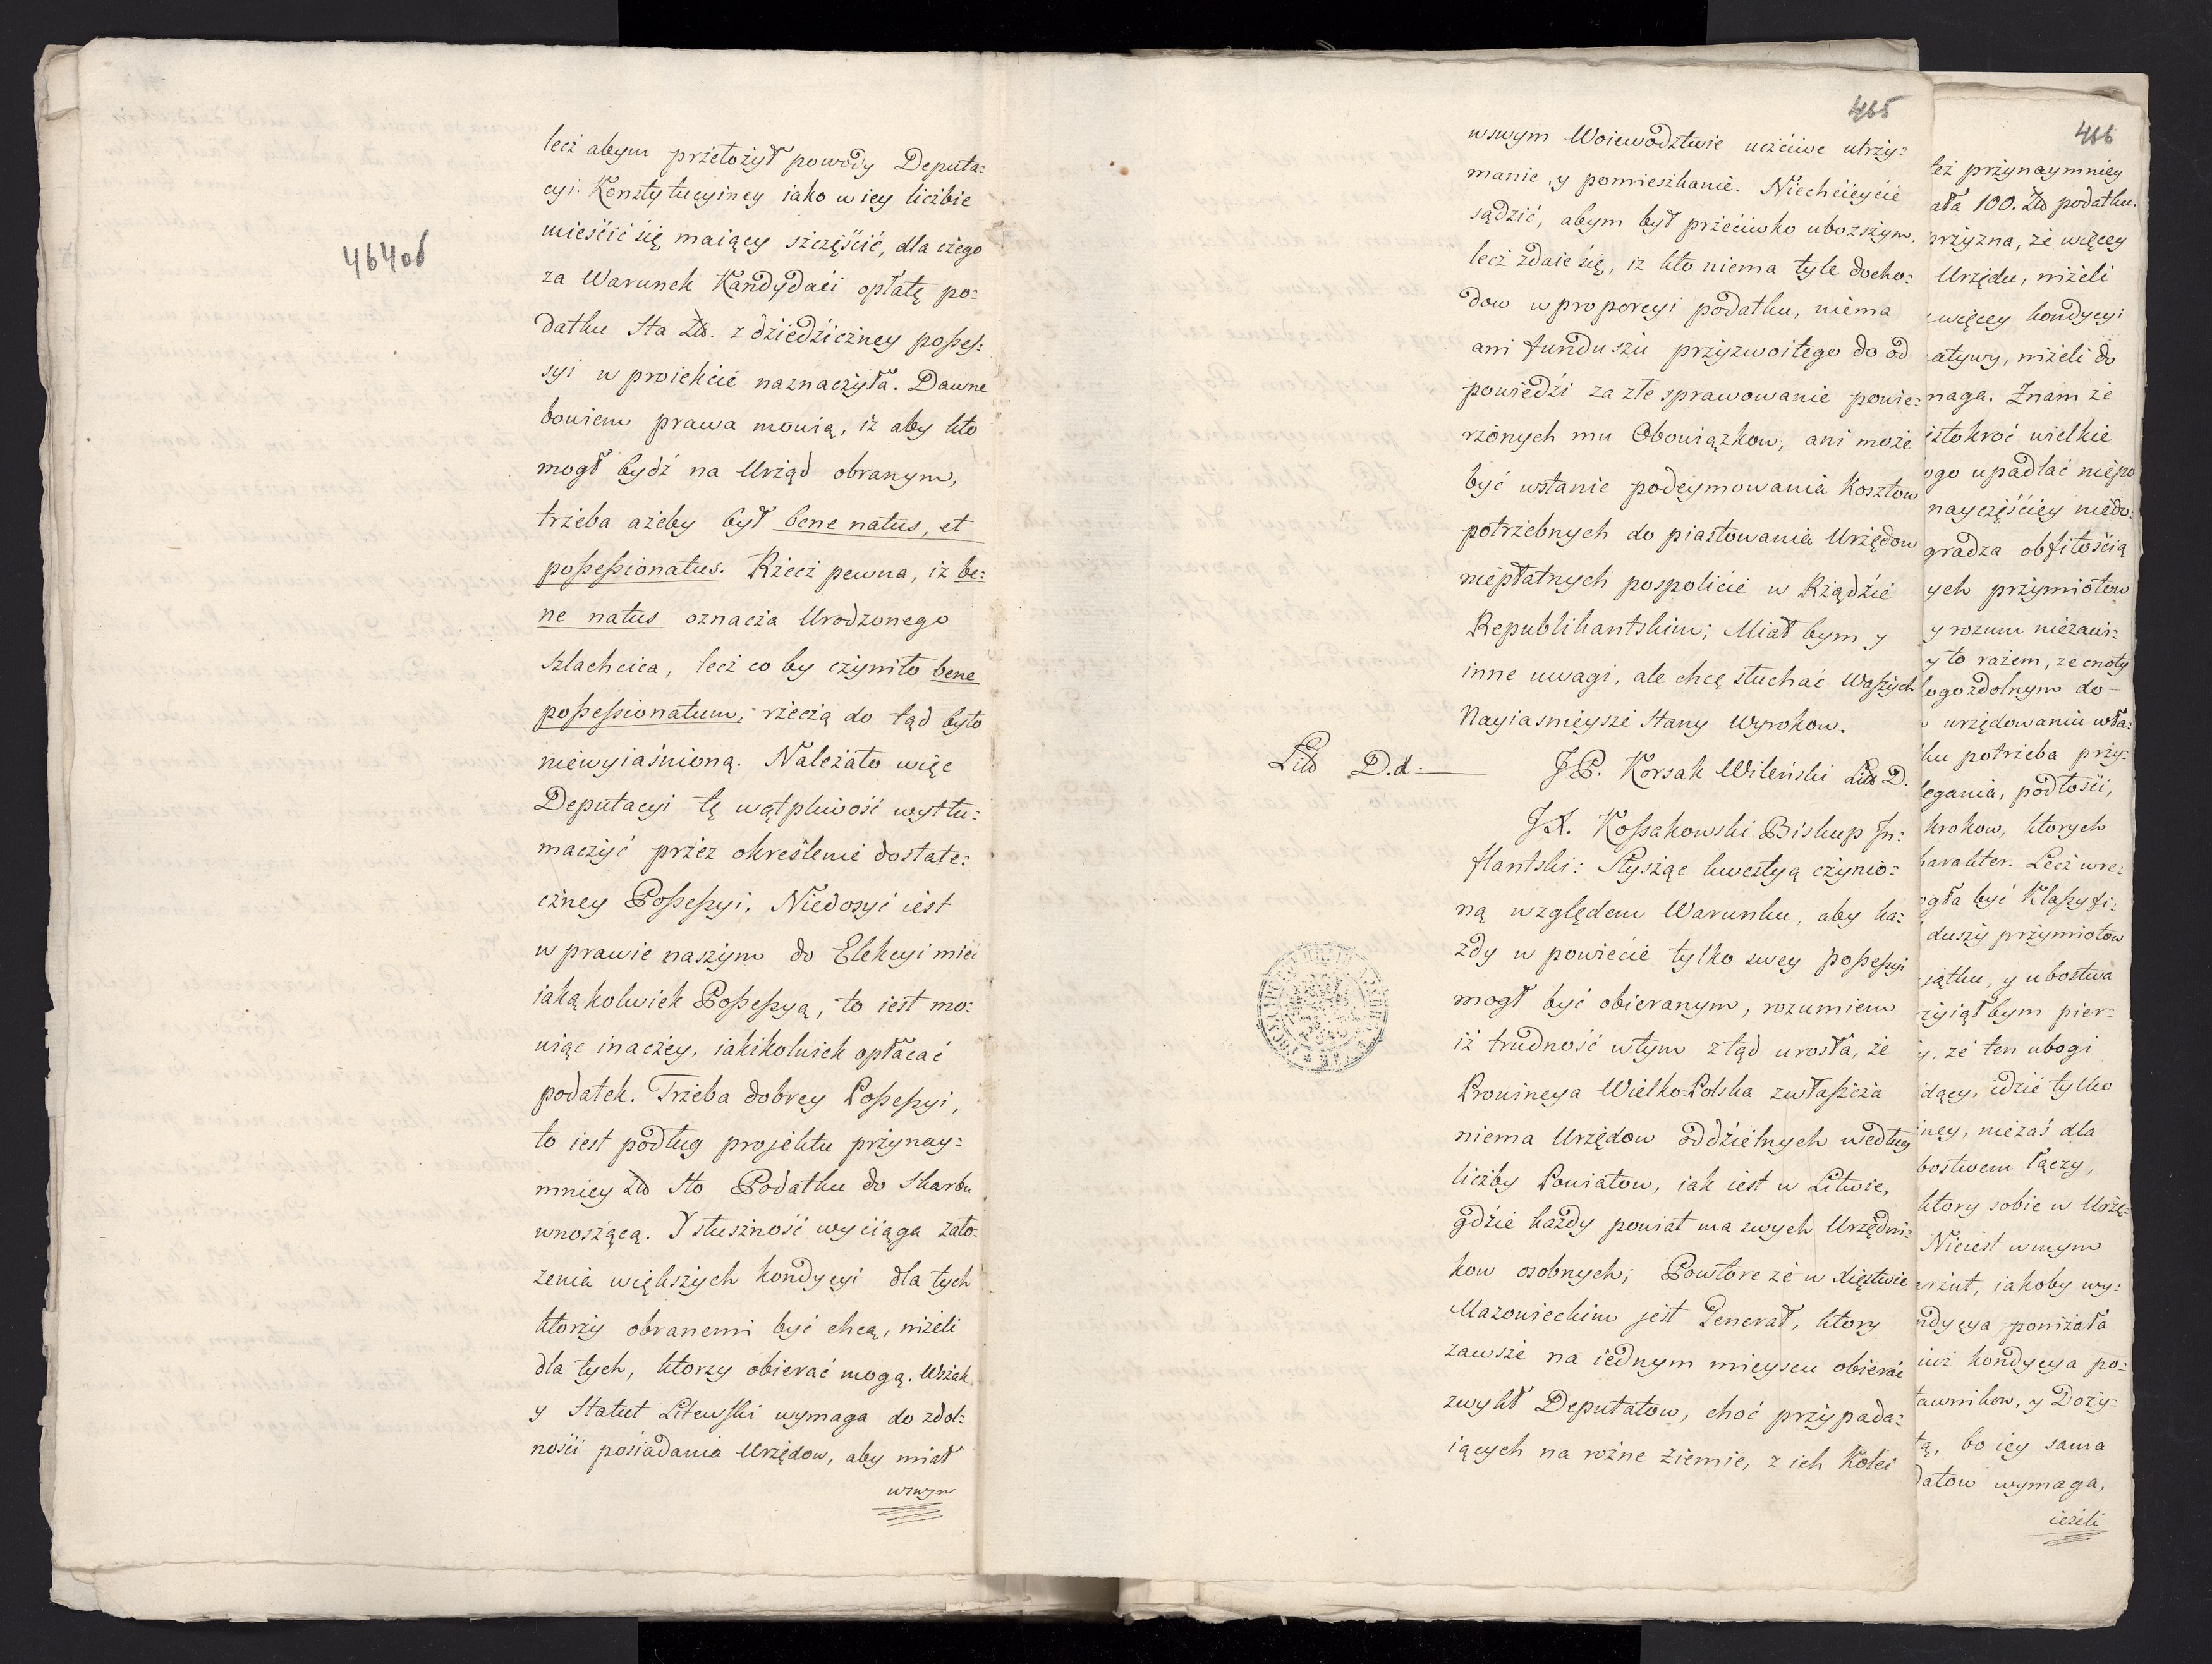 464об
lecz abym przełożył powody Deputa=
cyi Konstytucyiney iako w iey liczbie
mieścić się maiący szczęście, dla czego
za Warunek Kandydacii opłatę po=
datku sta Złł. z dziedziczney posses=
syi w proiekcie naznaczyła. Dawne
bowiem prawa mowią, iż aby kto
mogł bydź na Urząd obranym,
trzeba ażeby był bene natus, et
possessionatus. Rzecz pewna, iż be=
ne natus oznacza Urodzonego
Szlachcica, lecz co by czyniło bene
possessionatum, rzeczą do tąd było
niewyiaśnioną. Należało więc
Deputacyi tę wątpliwość wytłu=
maczyć przez określenie dostate=
czney Possessyi. Niedosyć iest
w prawie naszym do Elekcyi mieć
iakąkolwiek Possessyą, to iest mo=
wiąc inaczey, iakikolwiek opłacać
podatek. Trzeba dobrey Possessyi,
to iest podług projektu przynay=
mniey Złł sto Podatku do Skarbu
wnoszącą. Y słuszność wyciąga zało=
żenia większych kondycyi dla tych
ktorzy obranemi być chcą, niżeli
dla tych, ktorzy obierać mogą. Wszak
y Statut Litewski wymaga do zdol=
ności posiadania Urzędow, aby miał
wswym
465
wswym Woiewodztwie uczciwe utrzy=
manie y pomieszkanie. Niechcieycie
sądzić, abym był przeciwko ubozszym,
lecz zdaie się, iz kto niema tyle docho=
dow w proporcyi podatku, niema
ani funduszu przyzwoitego do od
powiedzi za złe sprawowanie powie=
rzonych mu Obowiązkow, ani może
być wstanie podeymowania Kosztow
potrzebnych do piastowania Urzędow
niepłatnych pospolicie w Rządzie
Republikantskim; Miał bym y
inne uwagi, ale chcę słuchać Waszych
Nayiasnieysze Stany Wyrokow.
Litt D.d.
JP. Korsak Wileński Litt D.
JX. Kossakowski Biskup In=
flantski: Słysząc kwestyą czynio=
ną względem Warunku, aby ka=
żdy w powiecie tylko swey possessyi
mogł być obieranym, rozumiem
iż trudność wtym ztąd urosła, że
Prowincya Wielko-Polska zwłaszcza
niema Urzędow oddzielnych według
liczby Powiatow, iak iest w Litwie,
gdzie każdy powiat ma swych Urzędni=
kow osobnych; Powtore że w Xięstwie
Mazowieckim jest Generał, ktory
zawsze na iednym mieyscu obierać
zwykł Deputatow, choć przypada=
iących na rożne Ziemie, z ich Kolei
466
też przynaymniey
ała 100. Złł podatku.
przyzna, że więcey
Urzędu, niżeli
więcey kondycyi
atywy, niżeli do
maga. Znam że
istokroć wielkie
ogo upadlać niepo
nayczęściey niedo=
gradza obfitością
ych przymiotow
y rozum niezawi=
y to razem, ze cnoty
ogo zdolnym do-
urzędowaniu wła=
ku potrzeba przy=
legania, podłości,
krokow, ktorych
harakter. Lecz wre=
ogła być Klassyfi=
duszy przymiotow
iątku, y ubostwa
rzyiął bym pier=
y, że ten ubogi
idący, idzie tylko
iney, niezaś dla
bostwem łączy,
ktory sobie w Urzę=
Nieiest wmym
arzut, iakoby wy=
ndycya poniżała
iuż kondycya po=
tawnikow, y Doży=
tą, bo iey sama
datow wymaga,
ieżeli